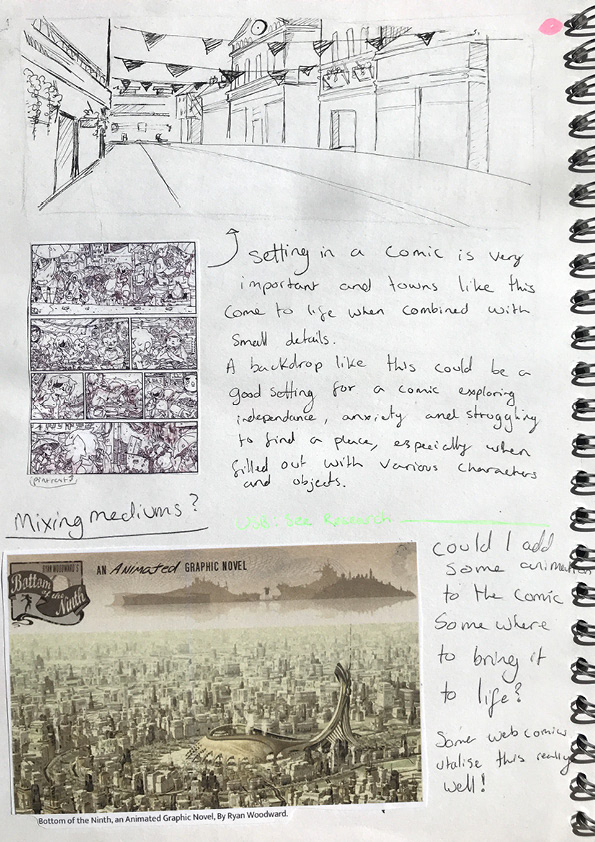 Setting in a comic is very
important and towns like this
Come to life when combined with
Small details.
A backdrop like this could be a
good setting for a comic exploring
independance, anxiety and struggling
to find a place, especially when
filled out with various characters
and objects.
(pinterest)
Mixing mediums?
See Research
RYAN WOODWARD'S
Bottom
of the
Ninth
AN ANIMATED GRAPHIC NOVEL
could I add
some animation
to the comic
Some where
to bring it
to life?
Some web comics
utalise this really
well!
Bottom of the Ninth, an Animated Graphic Novel, By Ryan Woodward.